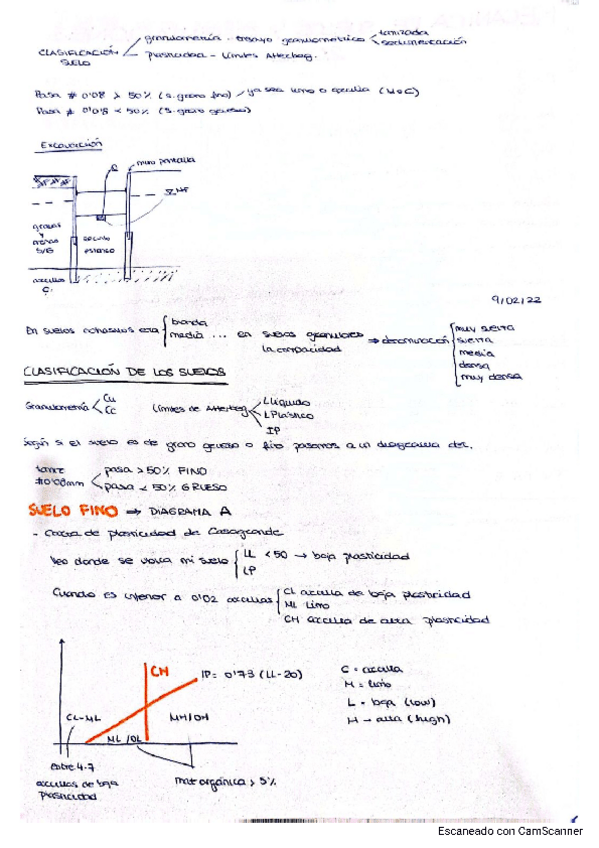 CLASIFICACIÓN SUELO
granulometría - ensayo granulométrico
tamizado
sedimentación
plasticidad - Límites Atterberg.
Pasa # 0'08 > 50% (s. grano fino) / ya sea limo o arcilla (M o C)
Pasa # 0'08 < 50% (s. grano grueso)
EXCAVACIÓN
muro pantalla
NF
gravas
y
arenas
S/G
recinto
estanco
arcillas
C.
9/02/22
En suelos cohesivos era
blanda
media ...
en suelos granulares
la compacidad
⇒ denominación
muy suelta
suelta
media
densa
muy densa
CLASIFICACIÓN DE LOS SUELOS
Granulometría
Cu
Cc
Límites de Atterberg
L Líquido
L Plástico
IP
Según si el suelo es de grano grueso o fino pasamos a un diagrama dif.
tamiz
#0'08mm
pasa > 50% FINO
pasa < 50% GRUESO
SUELO FINO ⇒ DIAGRAMA A
- Carta de plasticidad de Casagrande
Veo donde se ubica mi suelo
LL < 50 → baja plasticidad
LP
Cuando es inferior a 0'02 arcillas
CL arcilla de baja plasticidad
ML limo
CH arcilla de alta plasticidad
CH
IP= 0'73 (LL-20)
CL-ML
MH/OH
ML/OL
entre 4-7
arcillas de baja
plasticidad
mat orgánica > 5%
C = arcilla
M = limo
L = baja (low)
H → alta (high)
Escaneado con CamScanner